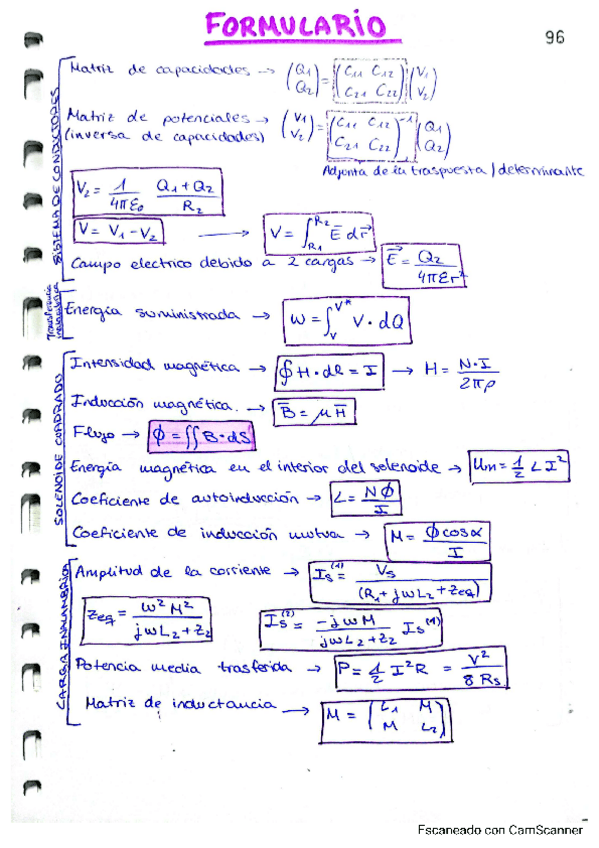 FORMULARIO
96
SISTEMA DE CONDUCTORES
Matriz de capacidades → (Q1 Q2) = (C11 C12 C21 C22) (V1 V2)
Matriz de potenciales → (V1 V2) = (C11 C12 C21 C22)^-1 (Q1 Q2)
(inversa de capacidades)
Adjunta de la traspuesta / determinante
V2 = 1/4πε0 Q1+Q2/R2
V = V1 - V2 → V = ∫_R1^R2 E dr
Campo electrico debido a 2 cargas → E = Q2/4πεr²
Energía suministrada → W = ∫_V^V* V · dQ
SOLENOIDE CUADRADO
Intensidad magnética → ∮ H · dl = I → H = N·I/2πρ
Inducción magnética. → B = μH
Flujo → ϕ = ∬ B · dS
Energía magnética en el interior del solenoide → Um = 1/2 L I²
Coeficiente de autoinducción → L = Nϕ/I
Coeficiente de inducción mutua → M = ϕ cosα/I
CARGA INALAMBRICA
Amplitud de la corriente → Is^(1) = Vs/(R1 + jwL2 + Zeq)
Zeq = w² M²/jwL2 + Z2
Is^(2) = -jwM/jwL2 + Z2 Is^(1)
Potencia media trasferida → P = 1/2 I² R = V²/8 Rs
Matriz de inductancia → M = (L1 M M L2)
Escaneado con CamScanner